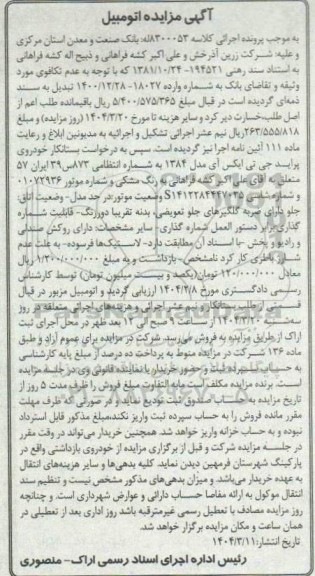 آگهی مزایده اتومبیل
به موجب پرونده اجرائی کلاسه ۸۳۰۰۰۵۳له: بانک صنعت و معدن استان مرکزی
و علیه: شرکت زرین آذرخش و علی اکبر کشه فراهانی و ذبیح اله کشه فراهانی
به استناد سند رهنی ۱۹۴۵۲۱- ۱۳۸۱/۱۰/۲۴ که با توجه به عدم تکافوی مورد
وثیقه و تقاضای بانک به شماره وارده ۱۸۰۲۷- ۱۴۰۰/۱۲/۲۸ تبدیل به سند
ذمه‌ای گردیده است در قبال مبلغ ۵/۴۰۰/۵۷۵/۳۶۵ ریال باقیمانده طلب اعم از
اصل طلب،خسارت دیر کرد و سایر هزینه تا مورخ ۱۴۰۴/۳/۲۰ (روز مزایده) و مبلغ
۲۶۳/۵۵۵/۸۱۸ریال نیم عشر اجرائی تشکیل و اجرائیه به مدیونین ابلاغ و رعایت
ماده ۱۱۱ آئین نامه اجرا نیز گردیده است. سپس به درخواست بستانکار خودروی
پراید جی تی ایکس آی مدل ۱۳۸۴ به شماره انتظامی ۸۷۳س۳۹ ایران ۵۷
متعلق به آقای علی اکبر کشه فراهانی به رنگ مشکی و شماره موتور ۰۱۰۷۲۹۳۶
و شماره شاسی وضعیت موتور:در حد مدل- وضعیت اتاق:
جلو دارای ضربه گلگیرهای جلو تعویضی، بدنه تقریبا دوررنگ- قابلیت شماره
گذاری:برابر دستور العمل شماره گذاری- سایر مشخصات: دارای روکش صندلی
و رادیو و پخش -با اسناد آن مطابقت دارد- لاستیک‌ها فرسوده- به علت عدم
شارژ باطری کار کرد نامشخص- بازداشت و به مبلغ ۱/۲۰۰/۰۰۰/۰۰۰ ریال
معادل ۱۲۰/۰۰۰/۰۰۰ تومان(یکصد و بیست میلیون تومان) توسط کارشناس
رسمی دادگستری مورخ ۱۴۰۴/۲/۸ ارزیابی گردید و اتومبیل مزبور در قبال
قسمتی از طلب بستانکار و نیم عشر اجرائی و هزینه‌های اجرائی متعلقه در روز
سه‌شنبه ۱۴۰۴/۳/۲۰ از ساعت ۹ صبح الی ۱۲ بعد ظهر در محل اجرای ثبت
اراک از طریق مزایده به فروش می‌رسد. شرکت در مزایده برای عموم آزاد و طبق
ماده ۱۳۶ شرکت در مزایده منوط به پرداخت ده درصد از مبلغ پایه کارشناسی
به حساب سپرده ثبت و حضور خریدار یا نماینده قانونی وی در جلسه مزایده
است. برنده مزایده مکلف است مابه التفاوت مبلغ فروش را ظرف مدت ۵ روز از
تاریخ مزایده به حساب صندوق ثبت تودیع نماید و در صورتی که ظرف مهلت
مقرر مانده فروش را به حساب سپرده ثبت واریز نکند،مبلغ مذکور قابل استرداد
نبوده و به حساب خزانه واریز خواهد شد. همچنین خریدار می‌تواند در وقت مقرر
در جلسه مزایده شرکت و قبل از برگزاری مزایده از خودروی بازداشتی واقع در
پارکینگ شهرستان فرمهین دیدن نماید. کلیه بدهی‌ها و سایر هزینه‌های انتقال
به عهده خریدار می‌باشد و میزان بدهی‌های مذکور مشخص نیست و تنظیم سند
انتقال موکول به ارائه مفاصا حساب دارائی و عوارض شهرداری است. و چنانچه
روز مزایده مصادف با تعطیل رسمی غیرمترقبه باشد روز اداری بعد از تعطیلی در
همان ساعت و مکان مزایده برگزار خواهد شد.
تاریخ انتشار:۱۴۰۴/۳/۱۱
رئیس اداره اجرای اسناد رسمی اراک- منصوری